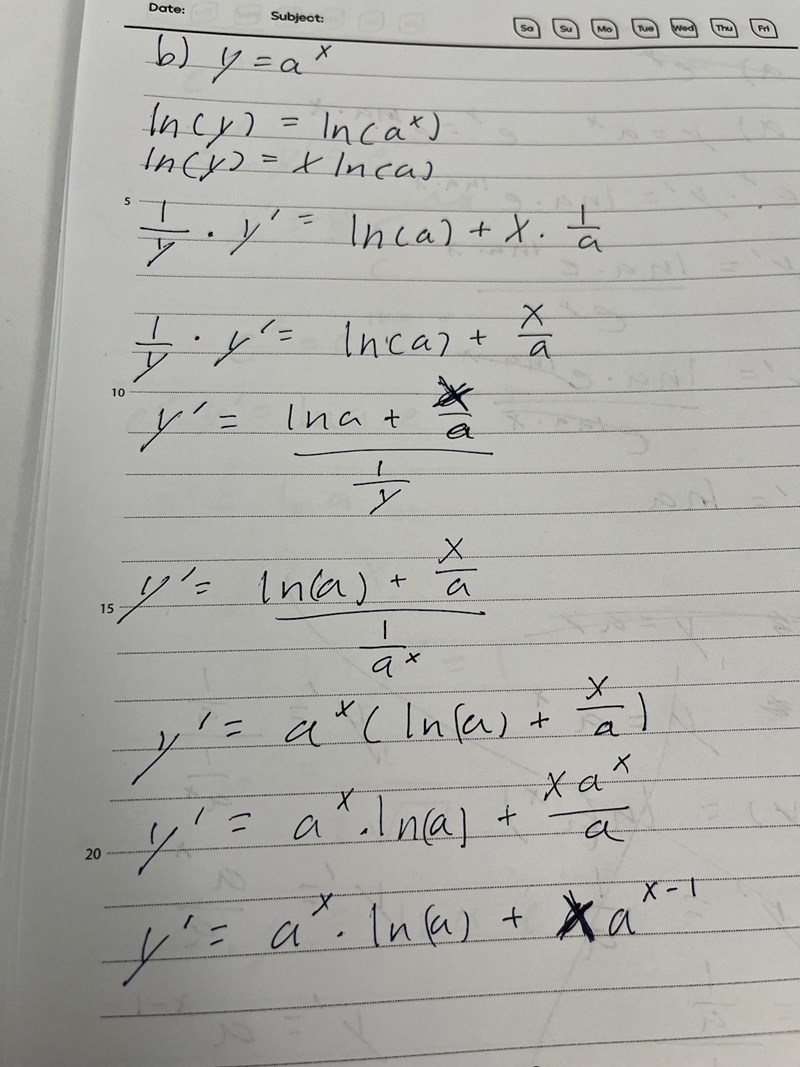 Date: Subject: Sa Su Mo Tue Wed Thu Fri
b) y = a^x
ln(y) = ln(a^x)
ln(y) = x ln(a)
5 1/y · y' = ln(a) + x · 1/a
1/y · y' = ln(a) + x/a
10
y' = (ln a + x/a)/(1/y)
15 y' = (ln(a) + x/a)/(1/a^x)
y' = a^x (ln(a) + x/a)
20 y' = a^x · ln(a) + xa^x/a
y' = a^x · ln(a) + xa^(x-1)